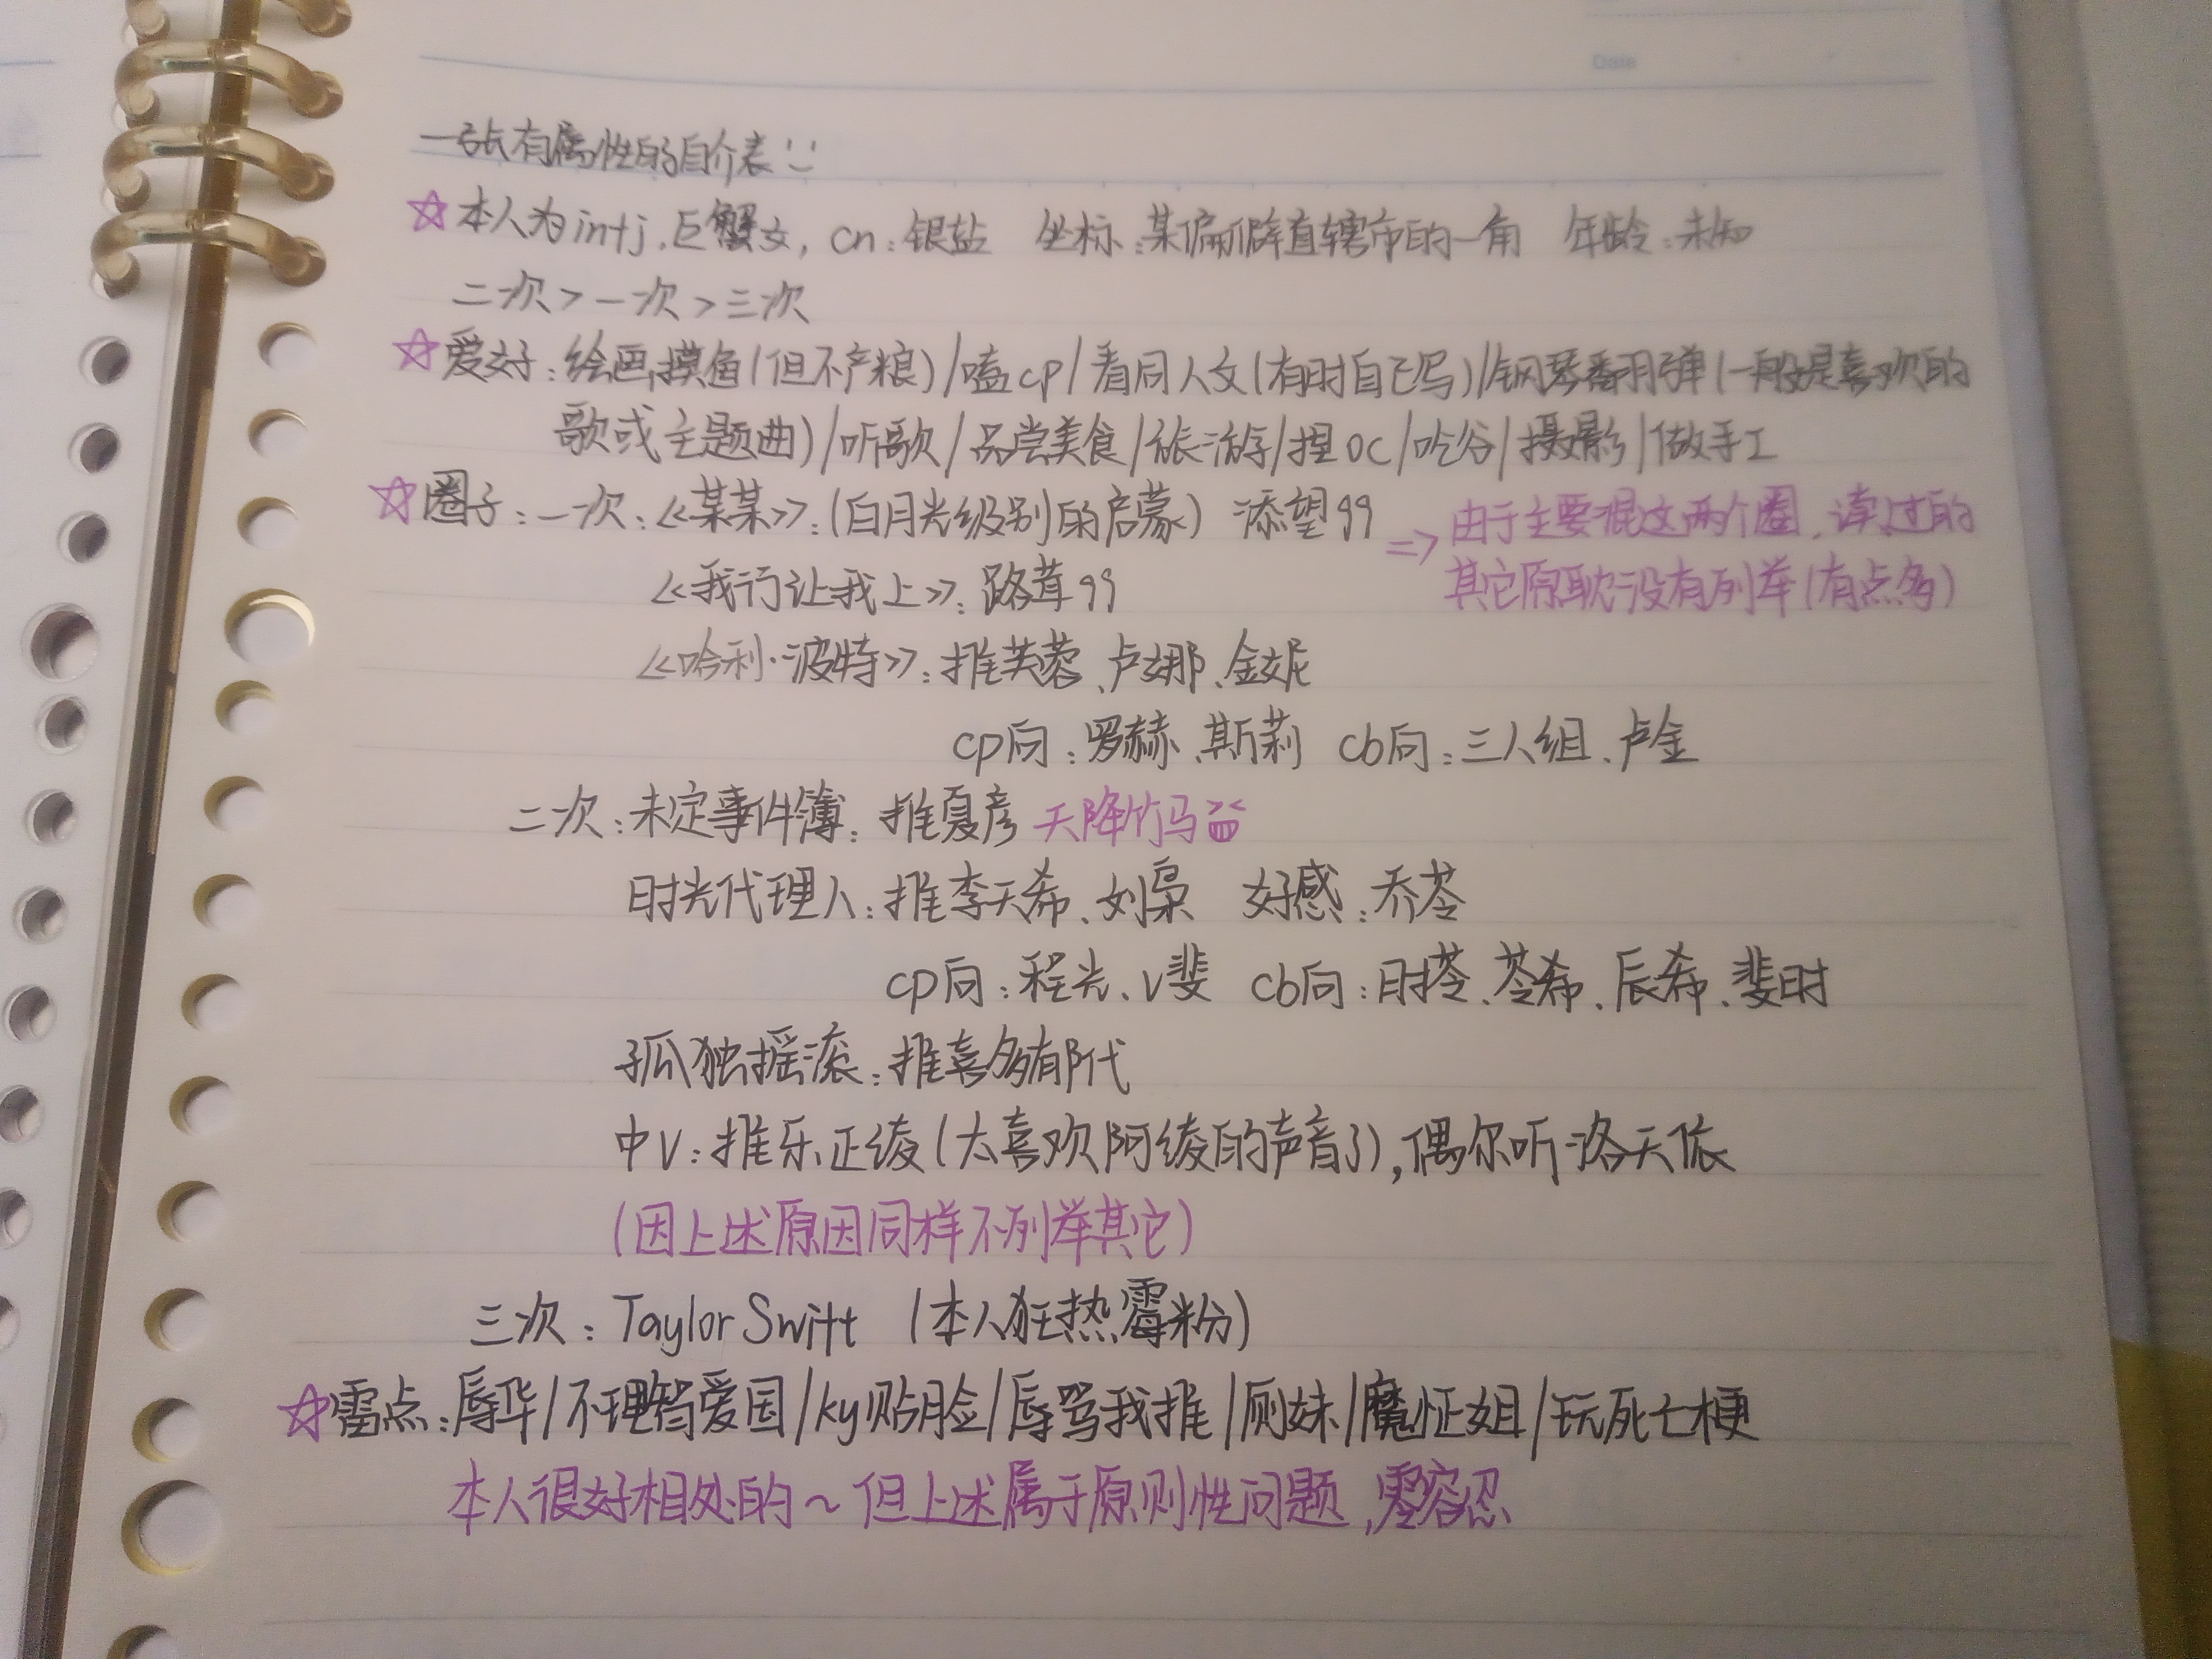 Date
一张有属性的自介表
☆本人为intj,巨蟹女, cn:银盐 坐标:某偏僻直辖市的一角 年龄:未知
二次>一次>三次
☆爱好:绘画摸鱼(但不产粮)/嗑cp/看同人文(有时自己写)/钢琴翻弹(一般是喜欢的
歌或主题曲)/听歌/品尝美食/旅游/捏OC/吃谷/摄影/做手工
☆圈子:一次:《某某》:(白月光级别的启蒙) 添望99 => 由于主要混这两个圈,读过的
其它原耽没有列举(有点多)
《我行让我上》:路茸99
《哈利·波特》:推芙蓉、卢娜、金妮
cp向:罗赫、斯莉 cb向:三人组、卢金
二次:未定事件簿:推夏彦 天降竹马
时光代理人:推李天希、刘枭 好感:乔苓
cp向:程光、V斐 cb向:时苓、苓希、辰希、斐时
孤独摇滚:推喜多郁代
中V:推乐正绫(太喜欢阿绫的声音了),偶尔听洛天依
(因上述原因同样不列举其它)
三次:Taylor Swift (本人狂热霉粉)
☆雷点:辱华/不理智爱国/ky贴脸/辱骂我推/厕妹/魔怔姐/玩死亡梗
本人很好相处的~但上述属于原则性问题,零容忍